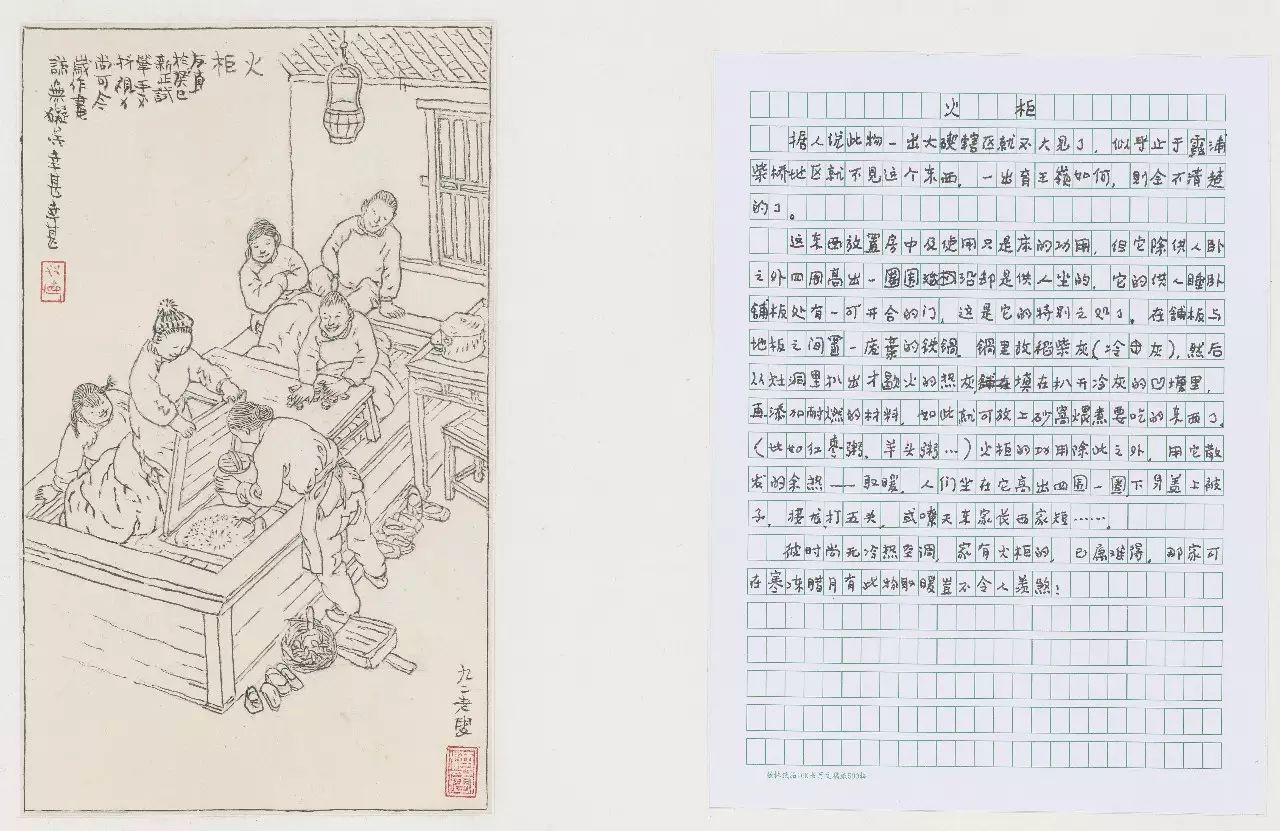 火柜
友直
於癸巳
新正試
筆手不
抖視力
尚可今
歲作畫
諒無礙矣幸甚幸甚
九二老叟
火柜
据人说此物一出大碶辖区就不大见了，似乎止于霞浦
柴桥地区就不见这个东西，一出育王嶺如何，则全不清楚
的了。
这东西放置房中及使用只是床的功用，但它除供人卧
之外四周高出一圈围沿却是供人坐的，它的供人睡卧
铺板处有一可开合的门，这是它的特别之处了。在铺板与
地板之间置一废弃的铁锅，锅里放稻柴灰(冷灰)，然后
从灶洞里扒出才歇火的热灰填在扒开冷灰的凹塘里，
再添加耐燃的材料，如此就可放上砂窩煨煮要吃的东西了。
(比如红枣粥，芋头粥…)火柜的功用除此之外，用它散
发的余热——取暖，人们坐在它高出四围一圈，下身盖上被
子，接龙打五关，或嚼天东家长西家短……。
彼时尚无冷热空调，家有火柜的，已属难得，那家可
在寒冻腊月有此物取暖岂不令人羡煞！